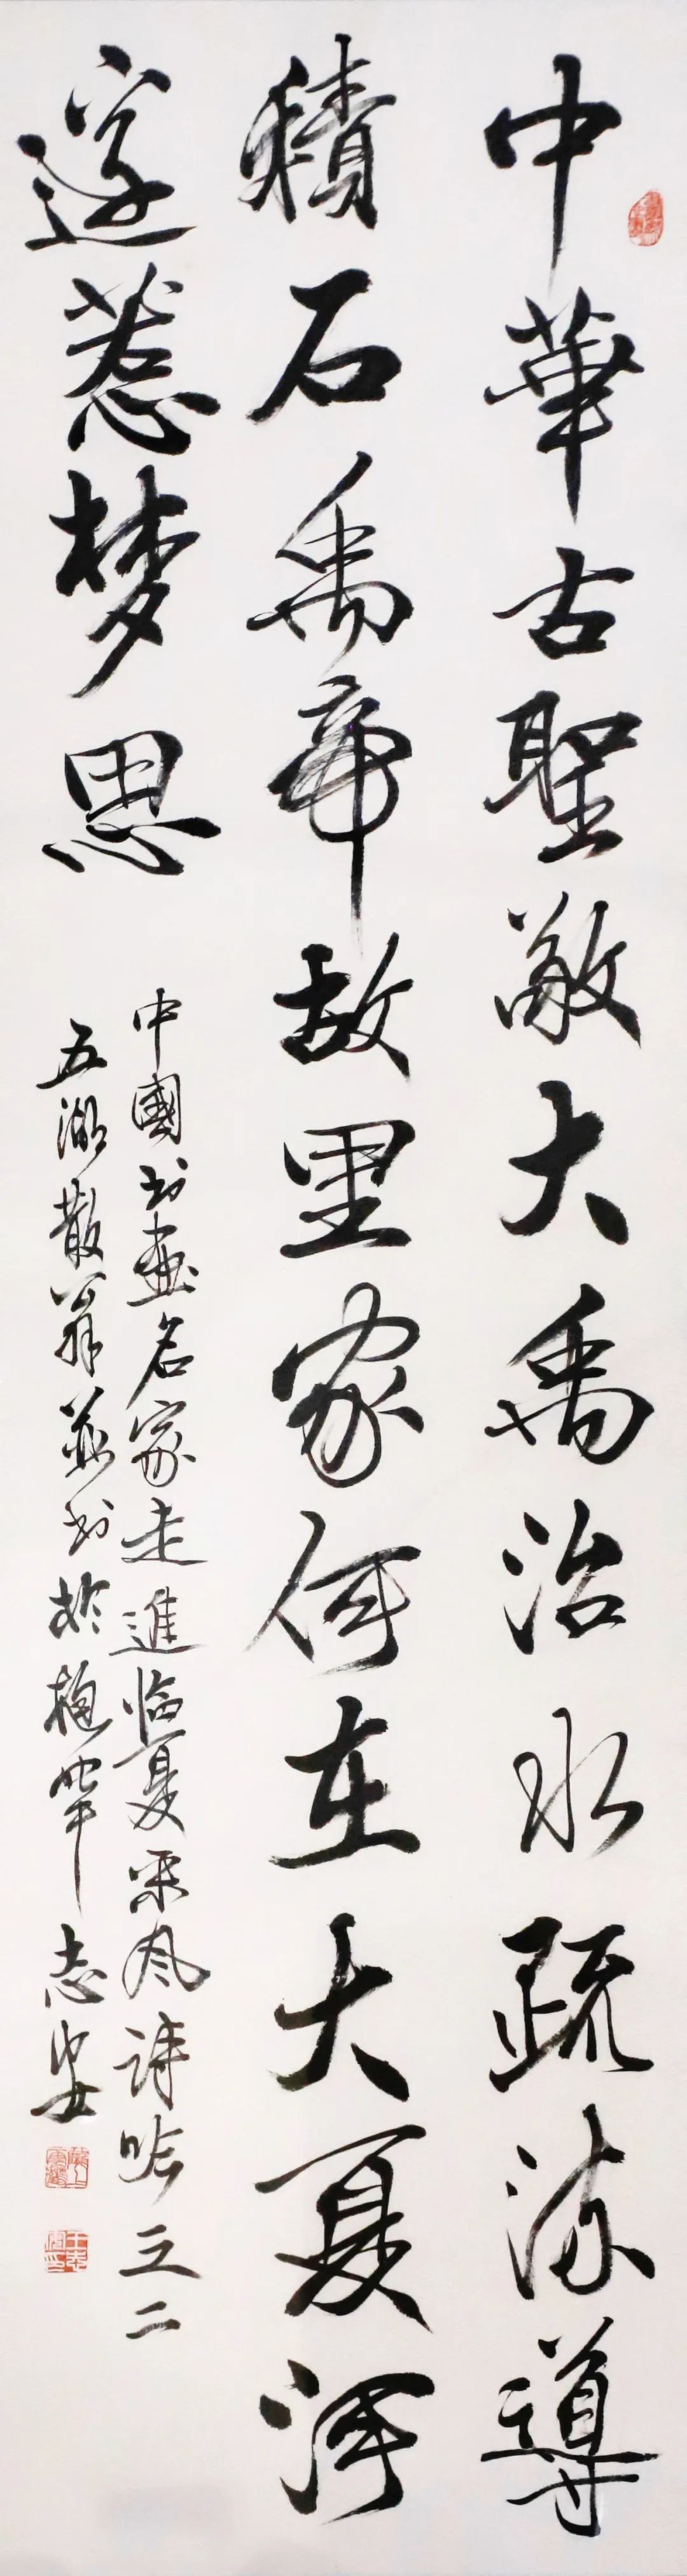 中華古聖敬大禹治水疏流導
積石禹章故里家何在大夏河
邊惹梦思
中國书畫名家走進临夏采风詩吟之二
五湖散翁並书於 志安